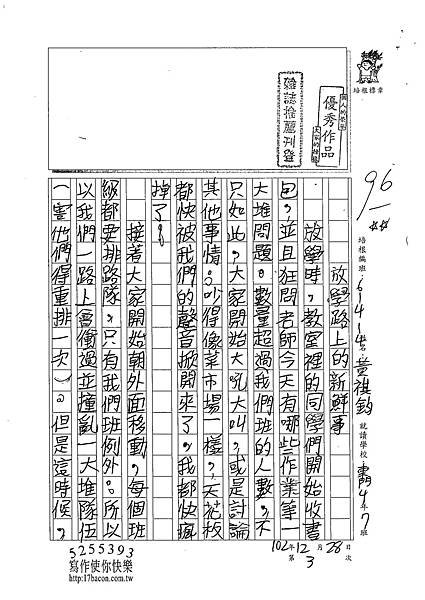 培根標章
優秀作品
雜誌推薦刊登
96
培根編班:6141 黃祺鈞 就讀學校 4年7班
放學路上的新鮮事
放學時,教室裡的同學們開始收書
包,並且狂問老師今天有哪些作業等一
大堆問題。數量超過我們班的人數。不
只如此,大家開始大吼大叫,或是討論
其他事情。吵得像菜市場一樣,天花板
都快被我們的聲音掀開來了,我都快瘋
掉了。
接著大家開始朝外面移動,每個班
級都要排路隊,只有我們班例外。所以
以我們一路上會衝過並撞亂一大堆隊伍
(害他們得重排一次)。但是這時候,
102年12月28日
第3次
5255393
寫作使你快樂
http://17bacon.com.tw